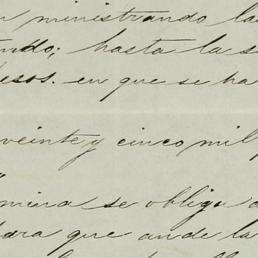 ministrando la
hasta la
pesos. en que se ha
veinte y cinco mil
se obliga
para que ande la